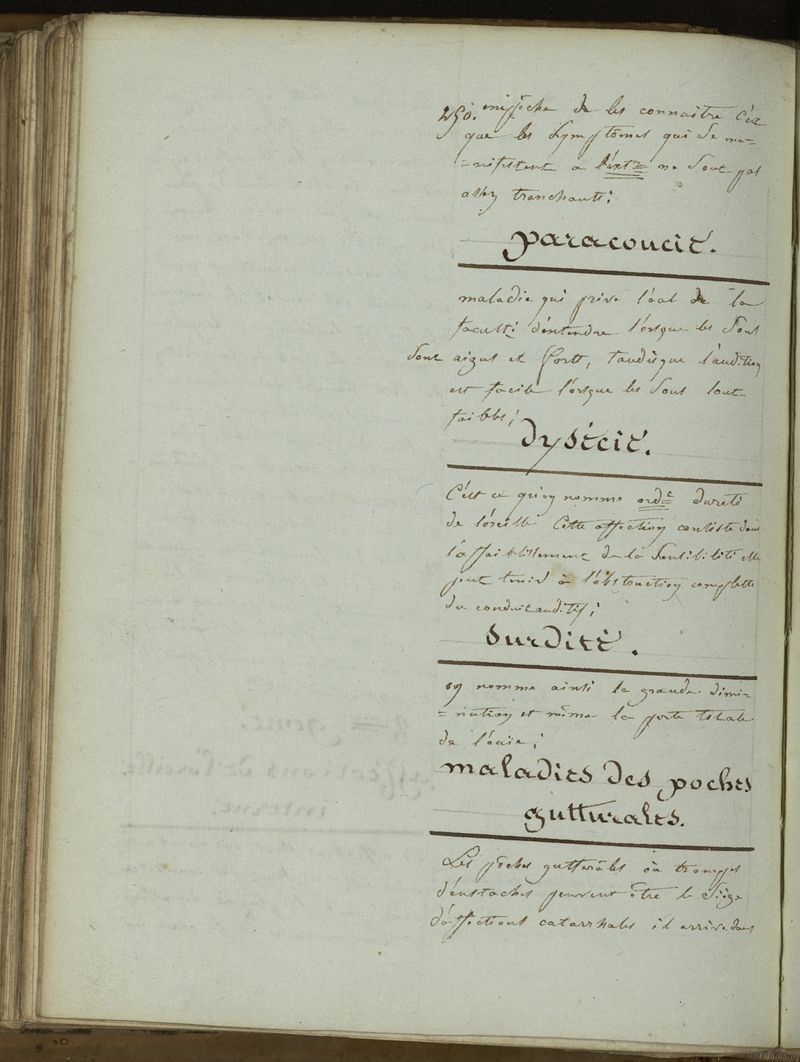 250. empeche de les connaitre C'est
que les Symptomes qui Se ma-=
=nifestent a l'ext.re ne Sont pas
assez tranchants;
paracoucie.
maladie qui prive l'aal de la
faculté d'entendre lorsque les Sons
Sont aigus et forts, tandisque l'audition
est facile lorsque les Sons Sont
faibles;
dysécie.
C'est ce qu'on nomme ord.e dureté
de l'oreille Cette affection consiste dans
l'affaiblissement de la Sensibilité elle
peut tenir à l'obstruction complette
du conduit auditif;
Surdité.
on nomme ainsi la grande dimi-=
=nution et même la perte totale
de l'ouie;
maladies des poches
gutturales.
Les poches gutturales ou trompes
d'eustaches peuvent être le Siége
d'affections catarrhales il arrive dans